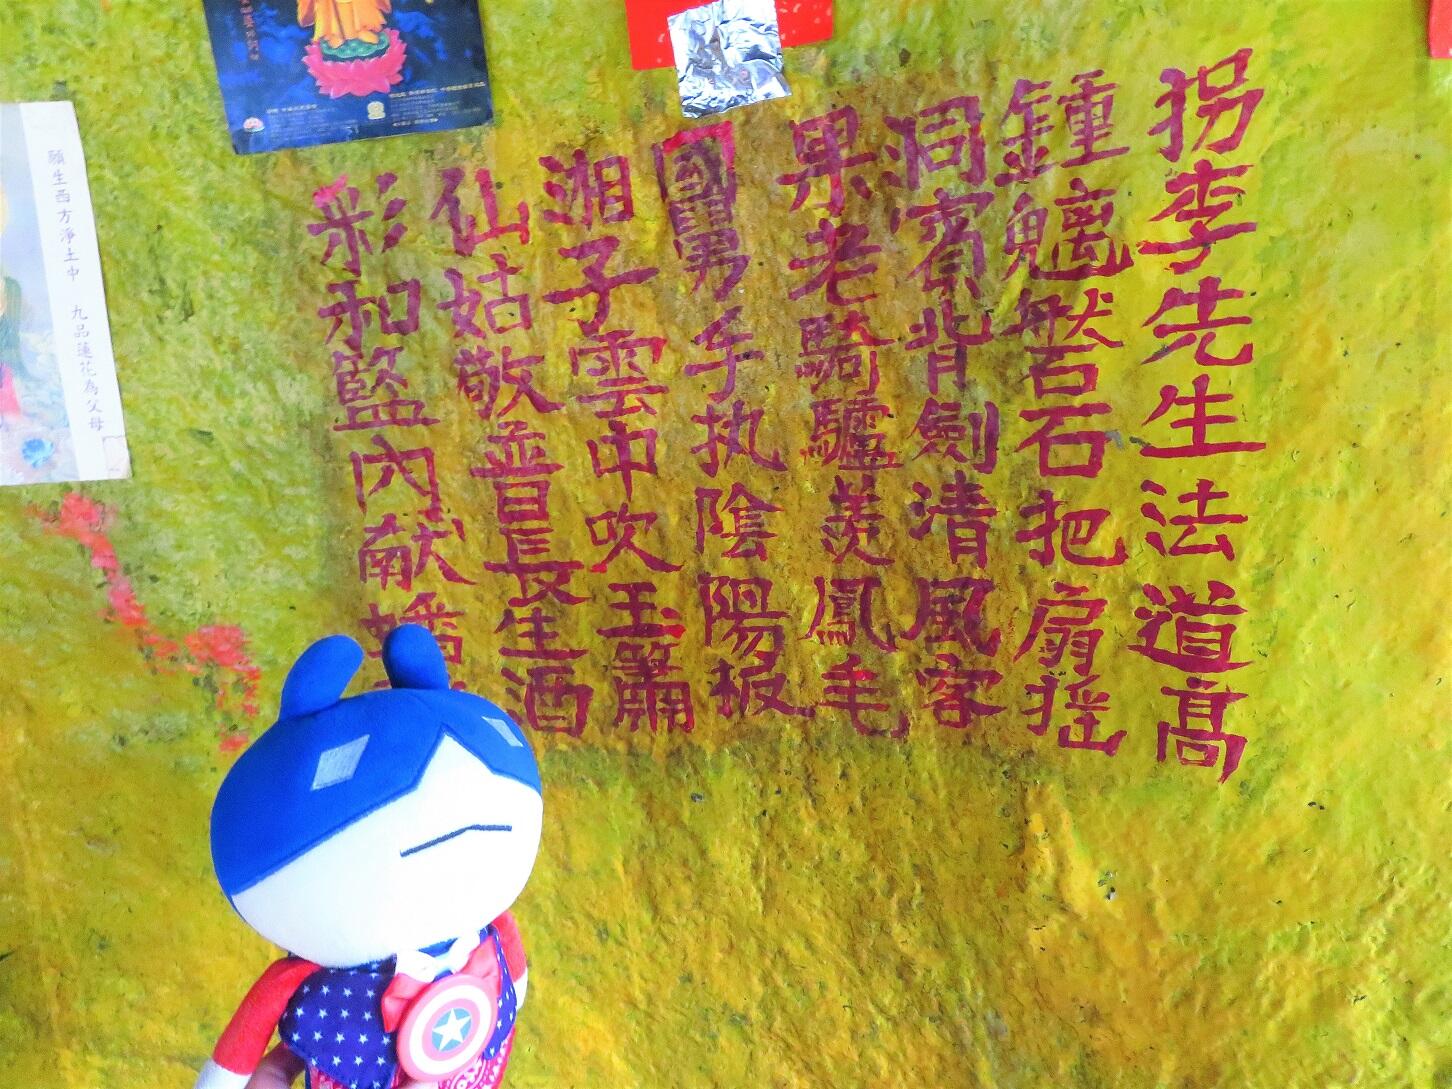 拐李先生法道高
鍾魑盤石把扇摇
洞賓背劍清風客
果老騎驢羨鳳毛
國舅手执陰陽板
湘子雲中吹玉簫
仙姑敬普長生酒
彩和籃内献蟠
願生西方淨土中 九品蓮花為父母